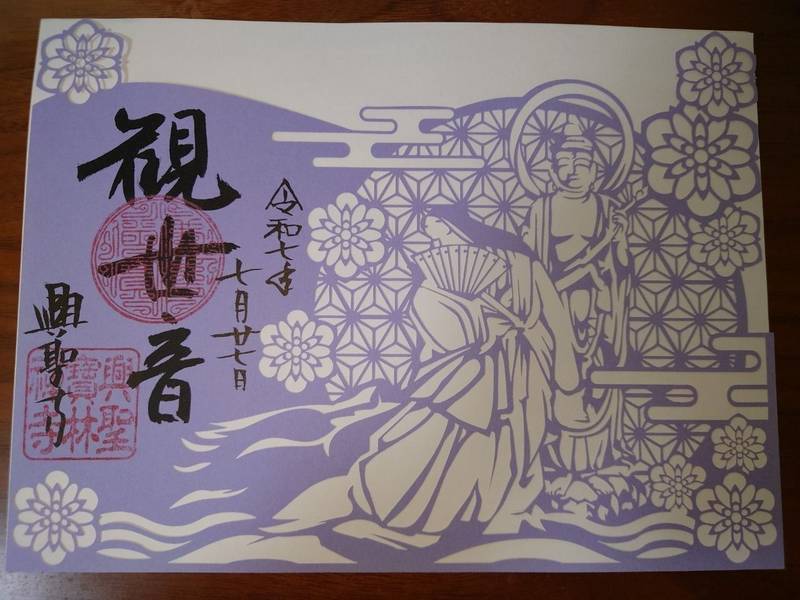 令和七年
七月廿七日
観世音
興聖寺
興聖
寶林
禅寺